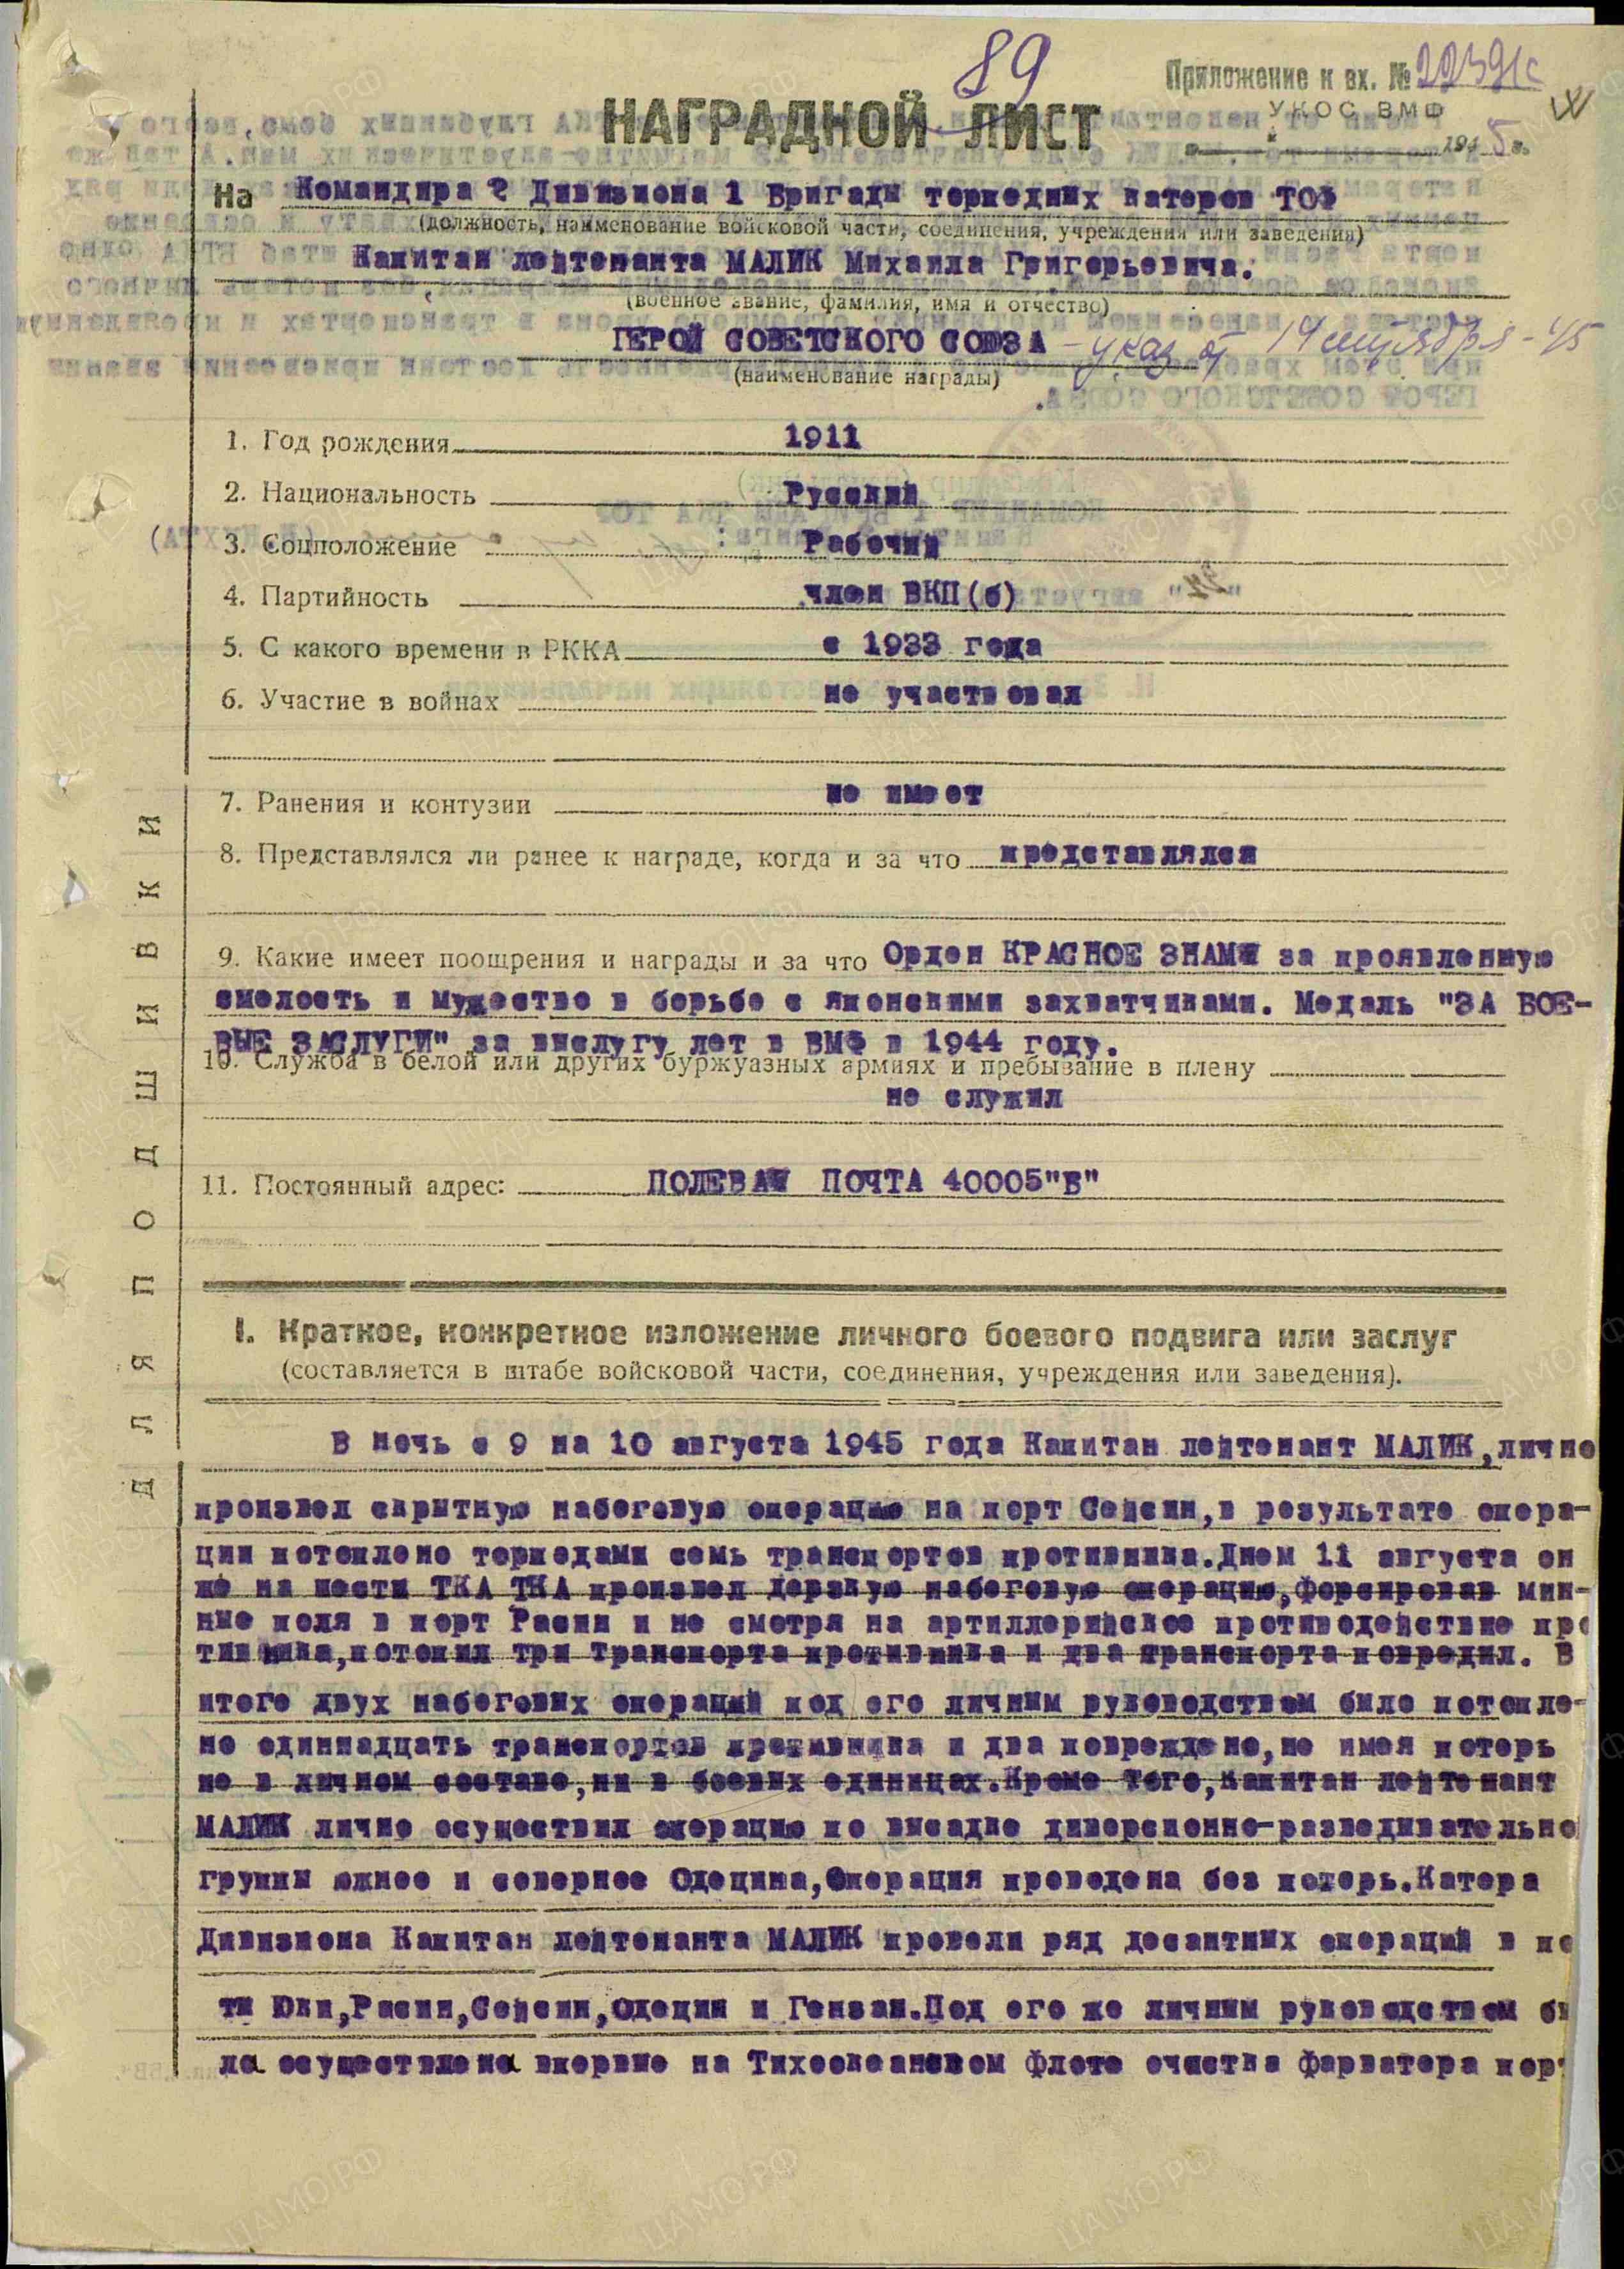 89
Приложение к вх. № 22391с
УКОС ВМФ
1945 г.
НАГРАДНОЙ ЛИСТ
На Командира 2 Дивизиона 1 Бригады торпедных катеров ТОФ
(должность, наименование войсковой части, соединения, учреждения или заведения)
Капитан лейтенанта МАЛИК Михаила Григорьевича.
(военное звание, фамилия, имя и отчество)
ГЕРОЙ СОВЕТСКОГО СОЮЗА - указ от 14 сентября - 45
(наименование награды)
1. Год рождения 1911
2. Национальность Русский
3. Соцположение Рабочий
4. Партийность член ВКП(б)
5. С какого времени в РККА с 1933 года
6. Участие в войнах не участвовал
7. Ранения и контузии не имеет
8. Представлялся ли ранее к награде, когда и за что представлялся
9. Какие имеет поощрения и награды и за что Орден КРАСНОЕ ЗНАМЯ за проявленную
смелость и мужество в борьбе с японскими захватчиками. Медаль "ЗА БОЕ-
ВЫЕ ЗАСЛУГИ" за выслугу лет в ВМФ в 1944 году.
10. Служба в белой или других буржуазных армиях и пребывание в плену
не служил
11. Постоянный адрес: ПОЛЕВАЯ ПОЧТА 40005"Б"
ДЛЯ ПОДШИВКИ
I. Краткое, конкретное изложение личного боевого подвига или заслуг
(составляется в штабе войсковой части, соединения, учреждения или заведения).
В ночь с 9 на 10 августа 1945 года Капитан лейтенант МАЛИК, лично
произвел скрытную набеговую операцию на порт Сейсин, в результате опера-
ции потоплено торпедами семь транспортов противника. Днем 11 августа он
же на шести ТКА ТКА произвел дерзкую набеговую операцию, форсировав мин-
ные поля в порт Расин и не смотря на артиллерийское противодействие про
тивника, потопил три транспорта противника и два транспорта повредил. В
итоге двух набеговых операций под его личным руководством было потопле-
но одиннадцать транспортов противника и два повреждено, не имея потерь
не в личном составе, ни в боевых единицах. Кроме того, капитан лейтенант
МАЛИК лично осуществил операцию по высадке диверсионно-разведывательно
группы южнее и севернее Одецина, Операция проведена без потерь. Катера
Дивизиона Капитан лейтенанта МАЛИК провели ряд десантных операций в по
ты Юки, Расин, Сейсин, Одецин и Гензан. Под его же личным руководством бы
ла осуществлена впервые на Тихоокеанском флоте очистка фарватера пор